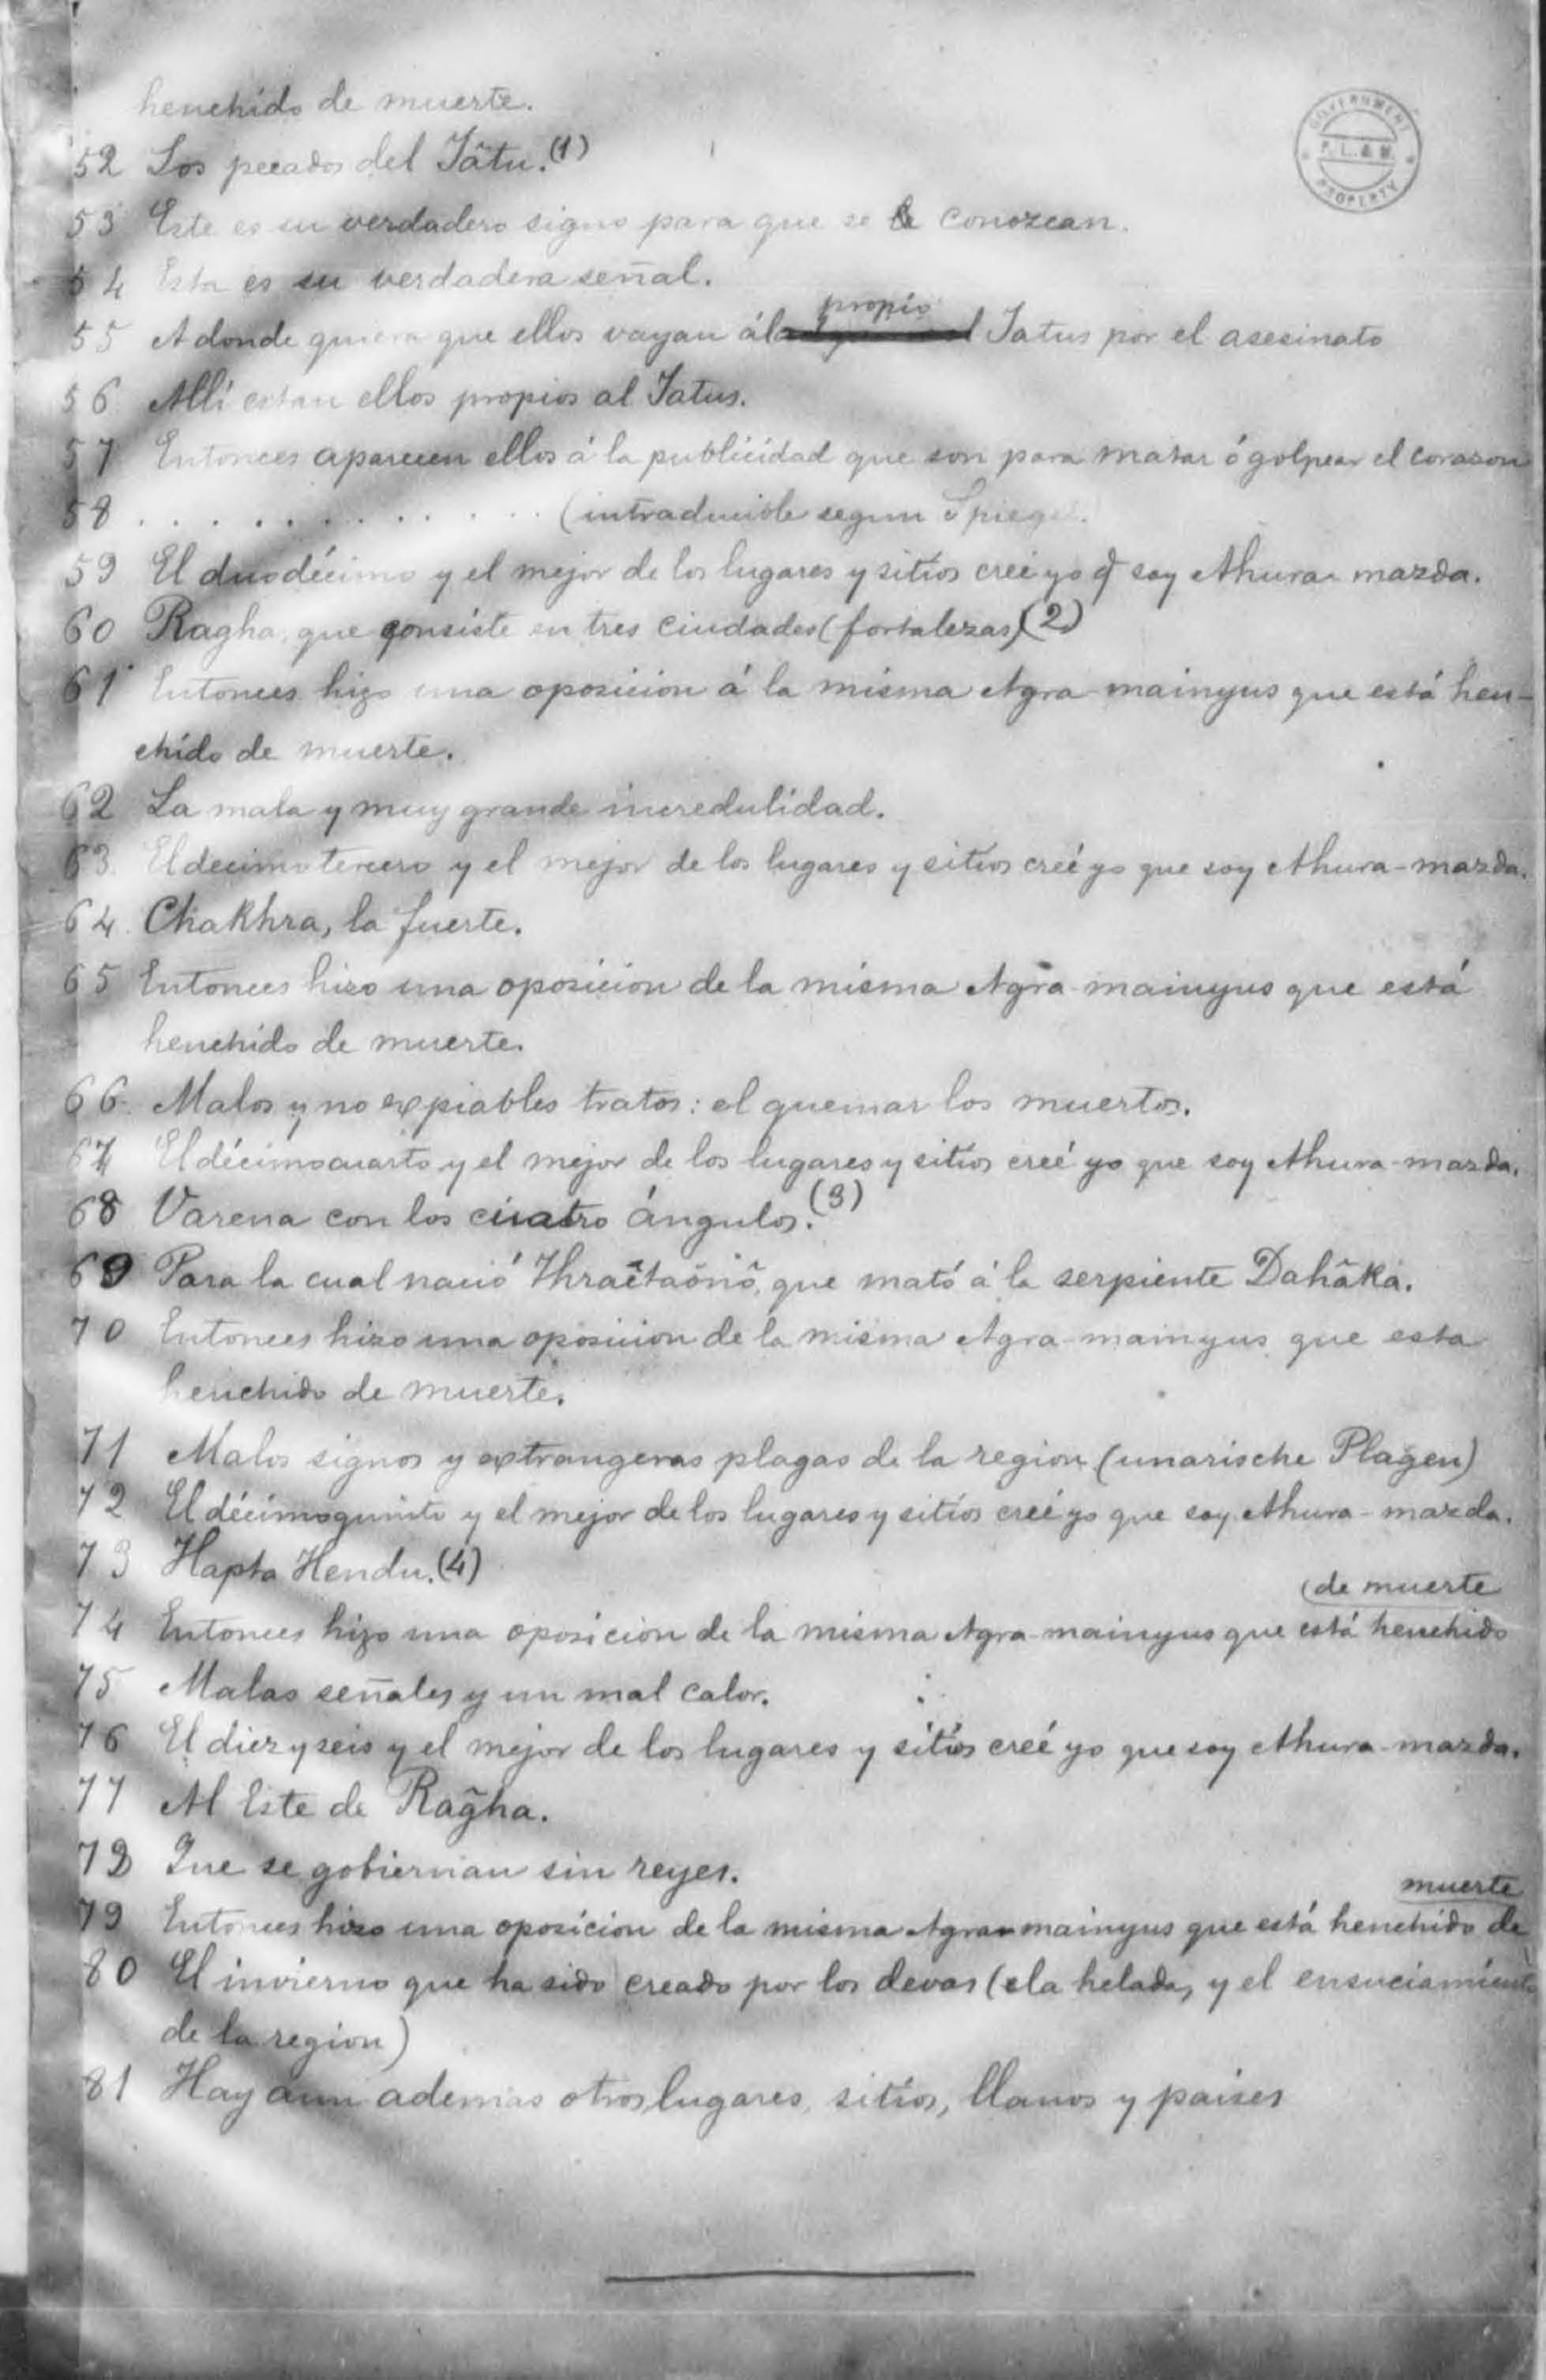 henchido de muerte.
GOVERNMENT
P.L. & M.
PROPERTY
52 Los pecados del Jâtu.(1)
53 Este es su verdadero signo para que se le conozcan.
54 Esta es su verdadera señal.
propio
55 A donde quiera que ellos vayan ál Jatus por el asesinato
56 Allí estan ellos propios al Jatus.
57 Entonces aparecen ellos á la publicidad que son para matar ó golpear el corazon
58 . . . . . . . . . . . . . . . (intraducible segun Spiegel.)
59 El duodécimo y el mejor de los lugares y sitíos creé yo q̃ soy Ahura-mazda.
60 Ragha, que consiste en tres ciudades (fortalezas)(2)
61 Entonces hizo una oposicion á la misma Agra-mainyus que está hen-
chido de muerte.
62 La mala y muy grande incredulidad.
63. El decimotercero y el mejor de los lugares y sitíos creé yo que soy Ahura-mazda.
64. Chakhra, la fuerte.
65 Entonces hizo una oposicion de la misma Agra-mainyus que está
henchido de muerte.
66. Malos y no expiables tratos: el quemar los muertos.
67 El décimocuarto y el mejor de los lugares y sitíos creé yo que soy Ahura-mazda.
68 Varena con los cuatro ángulos.(3)
69 Para la cual nació Thraêtaônô, que mató á la serpiente Dahâka.
70 Entonces hizo una oposicion de la misma Agra-mainyus que esta
henchido de muerte.
71 Malos signos y extrangeras plagas de la region (unarische Plagen)
72 El décimoquinto y el mejor de los lugares y sitíos creé yo que soy Ahura-mazda.
73 Hapta Hendu.(4)
(de muerte
74 Entonces hizo una oposicion de la misma Agra-mainyus que está henchido
75 Malas señales y un mal calor.
76 El diez y seis y el mejor de los lugares y sitíos creé yo que soy Ahura-mazda.
77 Al Este de Rag̃ha.
78 Que se gobiernan sin reyes.
muerte
79 Entonces hizo una oposicion de la misma Agra-mainyus que está henchido de
80 El invierno que ha sido creado por los devas (la helada, y el ensuciamiento
de la region)
81 Hay aun ademas otros lugares, sitíos, llanos y paises